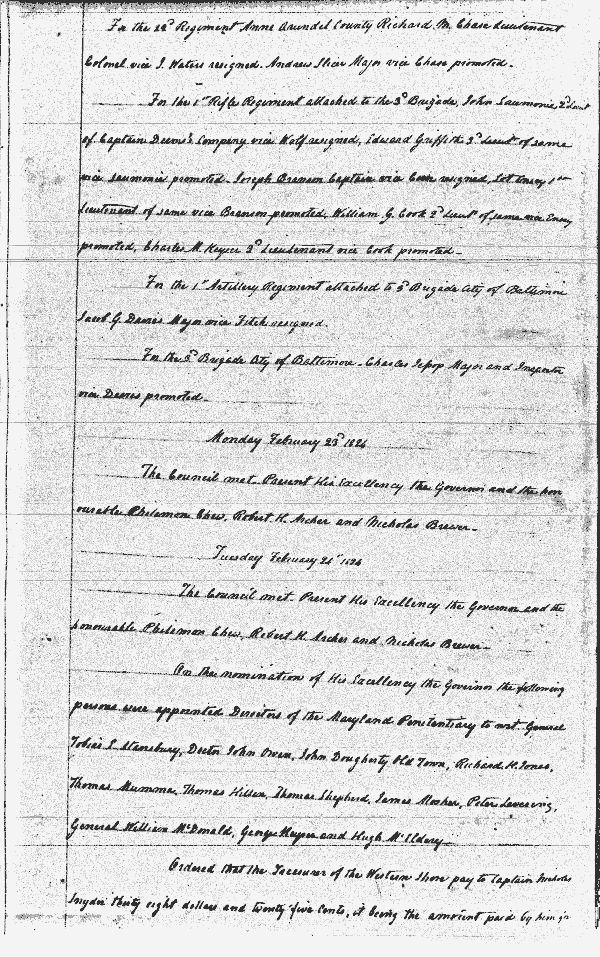 For the 22d Regiment Anne Arundel County Richard M. Chase Lieutenant
Colonel vice J. Waters resigned. Andrew Slicer Major vice Chase promoted.
For the 1st Rifle Regiment attached to the 3d Brigade, John Saumonie 2d Lieut
of Captain Deems's Company vice Wolf resigned, Edward Griffith 3d Lieut of same
vice Saumonie promoted. Joseph Branson Captain vice resigned, Ensey 1st
Lieutenant of same vice Branson promoted, William G. Cook 2d Lieut of same vice Ensey
promoted, Charles M. Keyser 3d Lieutenant vice Cook promoted.
For the 1st Artillery Regiment attached to 3d Brigade City of Baltimore
Jacob G. Davies Major vice Fitch resigned.
For the 3d Brigade City of Baltimore. Charles Major and Inspector
vice Davies promoted.
Monday February 23d 1824
The Council met. Present His Excellency the Governor and the hon
ourable Philemon Chew, Robert H. Archer and Nicholas Brewer.
Tuesday February 24th 1824
The Council met. Present His Excellency the Governor and the
honourable Philemon Chew, Robert H. Archer and Nicholas Brewer.
On the nomination of His Excellency the Governor the following
persons were appointed Directors of the Maryland Penitentiary to wit. General
Tobias E. Stansbury, Doctor John Owen, John Dougherty Old Town, Richard H. Jones,
Thomas Mumma, Thomas Hillen, Thomas Shepherd, James Mosher, Peter Levering,
General William McDonald, George Keyser and Hugh McElderry.
Ordered that the Treasurer of the Western Shore pay to Captain Nicholas
Snyder thirty eight dollars and twenty five Cents, it being the amount paid by him for